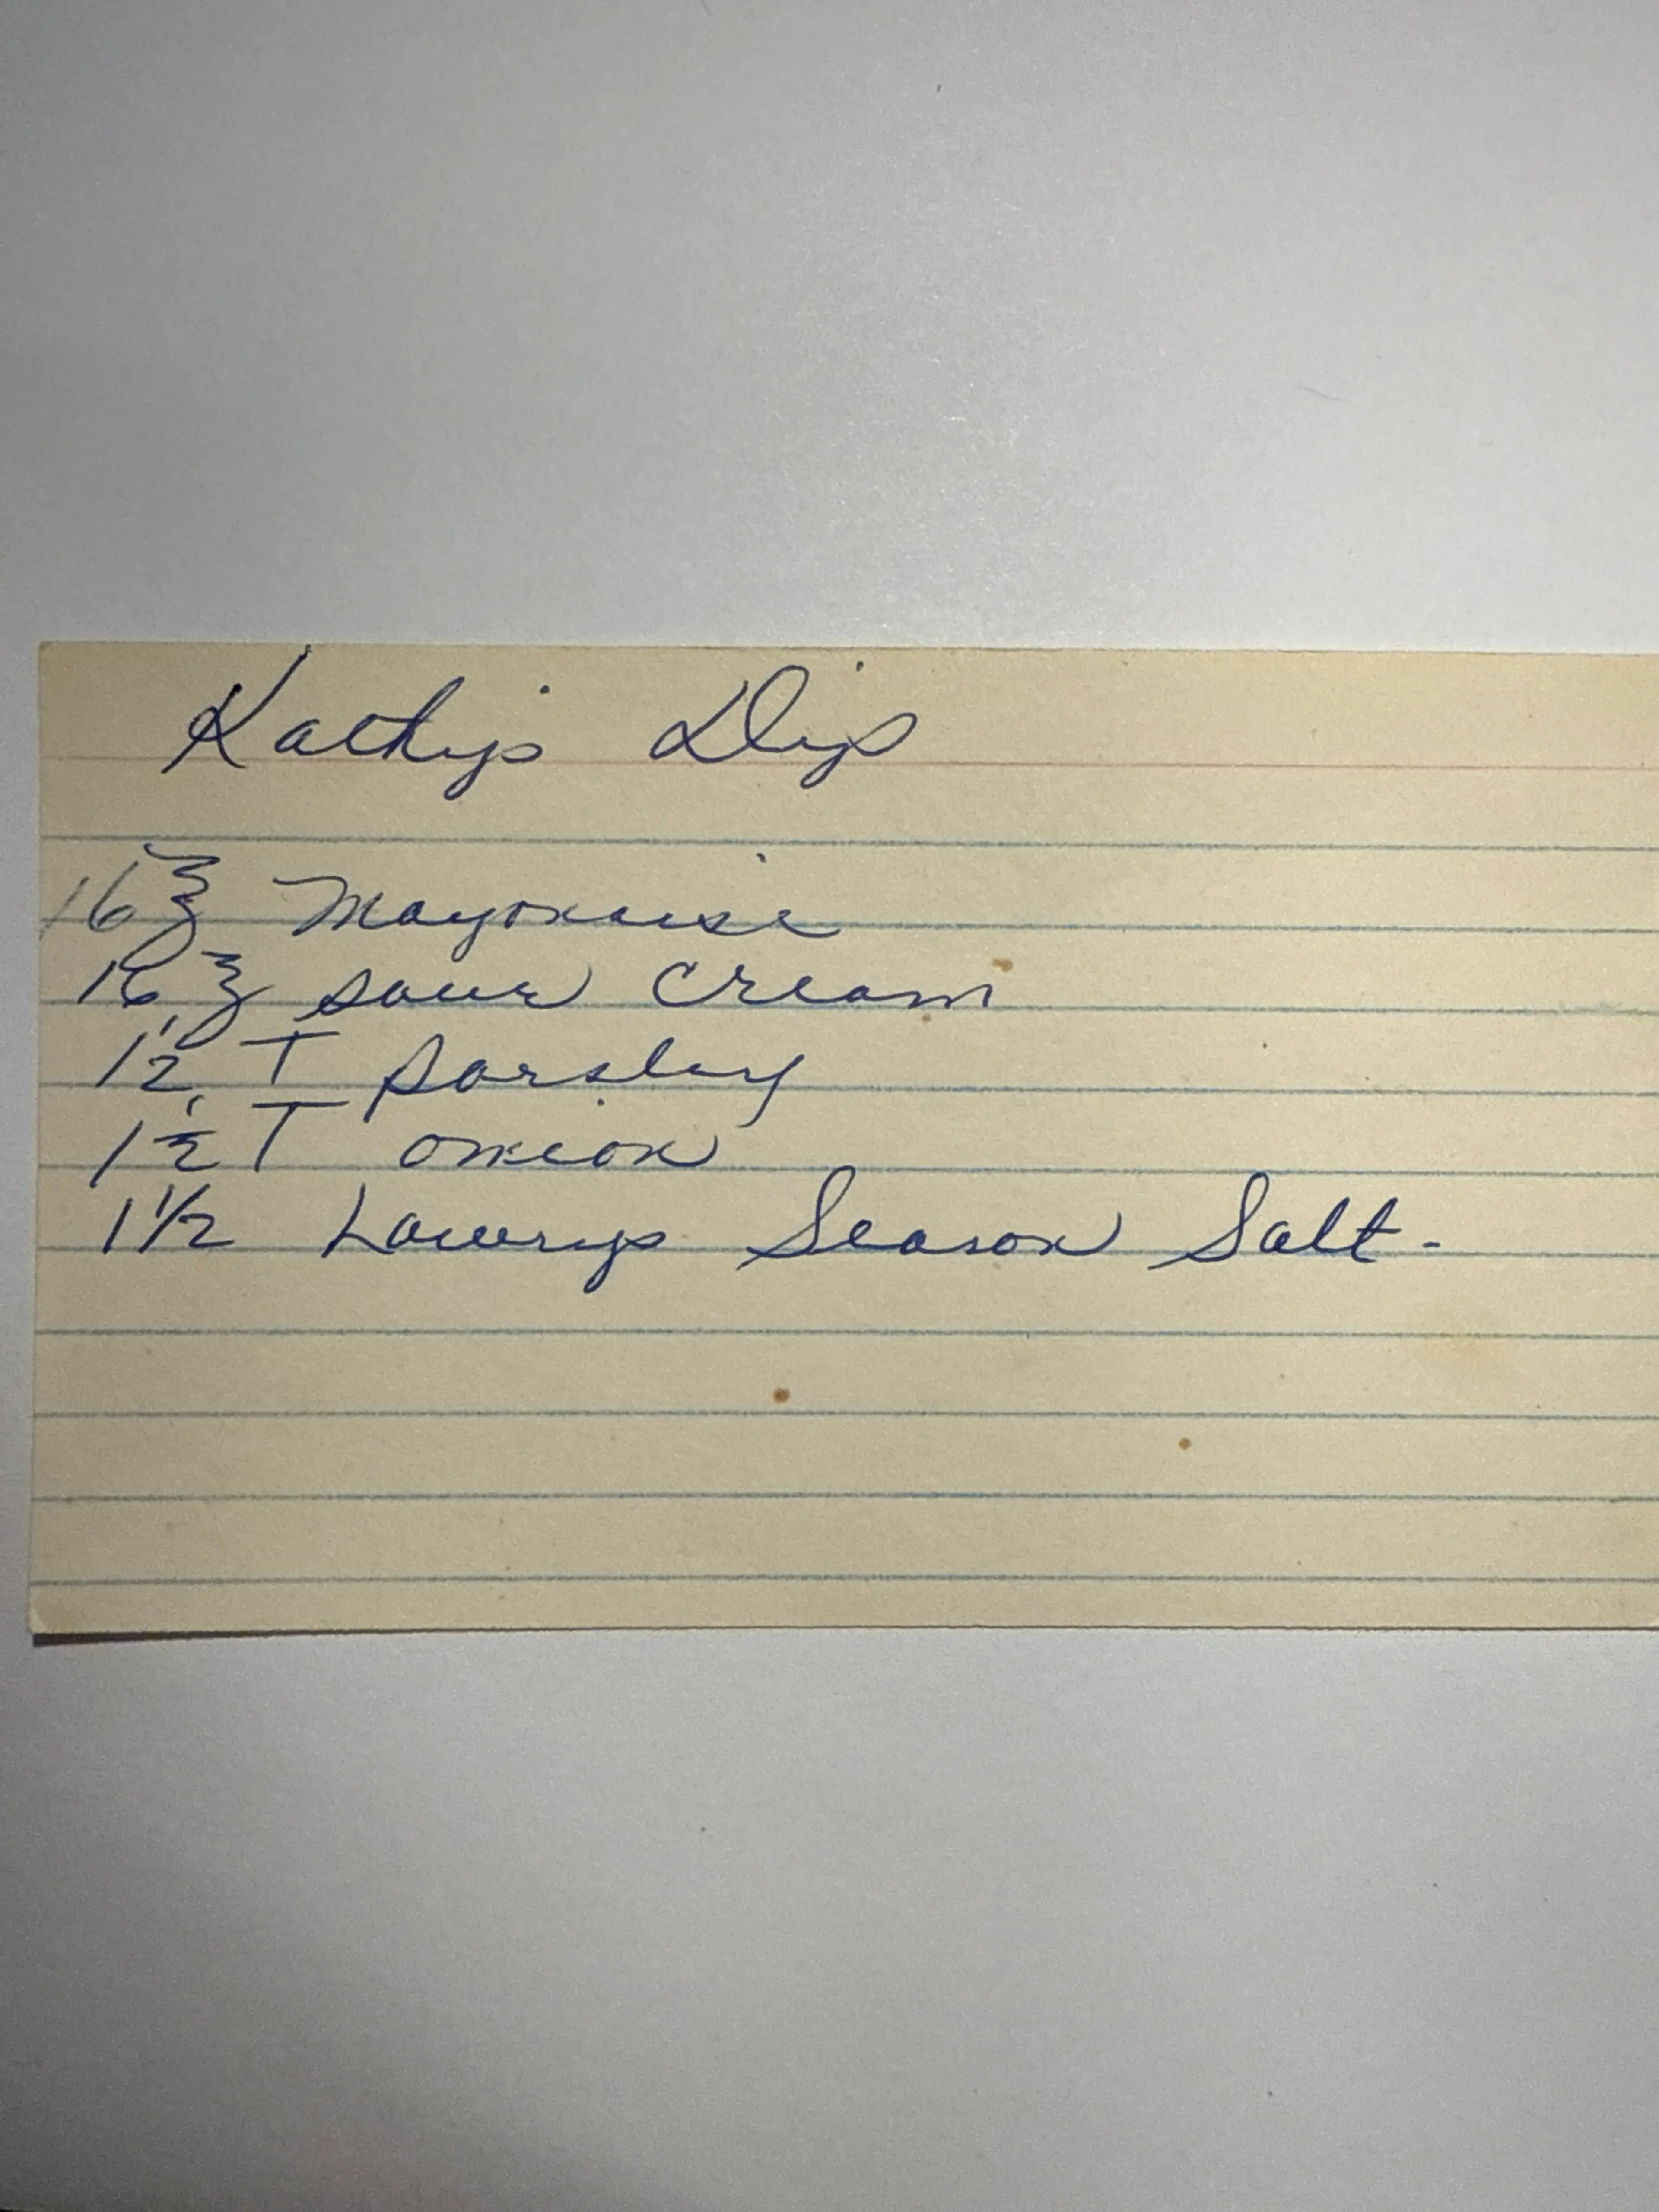 Kathy's Dip
16 ℥ Mayonaise
16 ℥ sour cream
1 1/2 T parsley
1 1/2 T onion
1 1/2 Lowrys Season Salt -